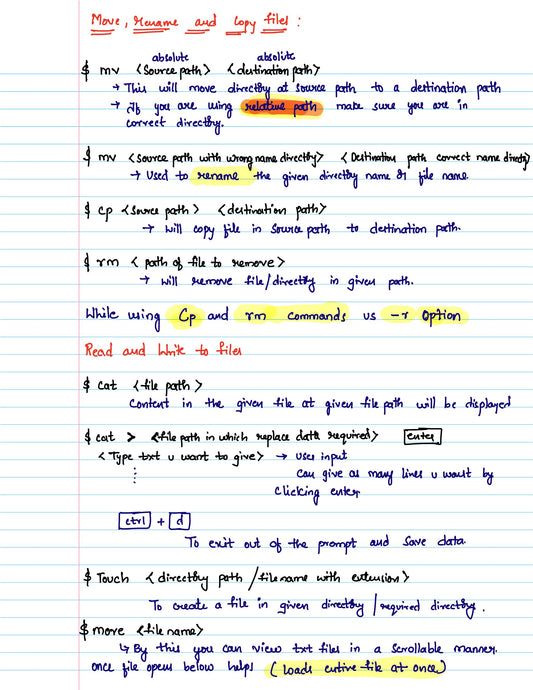 Move, Rename and Copy files :
absolute absolute
$ mv <Source path> <destination path>
→ This will move directory at source path to a destination path
→ If you are using relative path make sure you are in
correct directory.
$ mv <Source path with wrong name directory> <Destination path correct name directory>
→ Used to rename the given directory name or file name.
$ cp <source path> <destination path>
→ will copy file in source path to destination path.
$ rm < path of file to remove>
→ will remove file/directory in given path.
While using Cp and rm commands us -r option
Read and Write to files
$ cat <file path>
Content in the given file at given file path will be displayed
$ cat > <file path in which replace data required> enter
<Type txt u want to give> → user input
⋮ Can give as many lines u want by
clicking enter
ctrl + d
To exit out of the prompt and save data.
$ Touch <directory path /filename with extension>
To create a file in given directory / required directory.
$ more <file name>
↳ By this you can view txt files in a scrollable manner.
once file opens below helps (loads entire file at once)